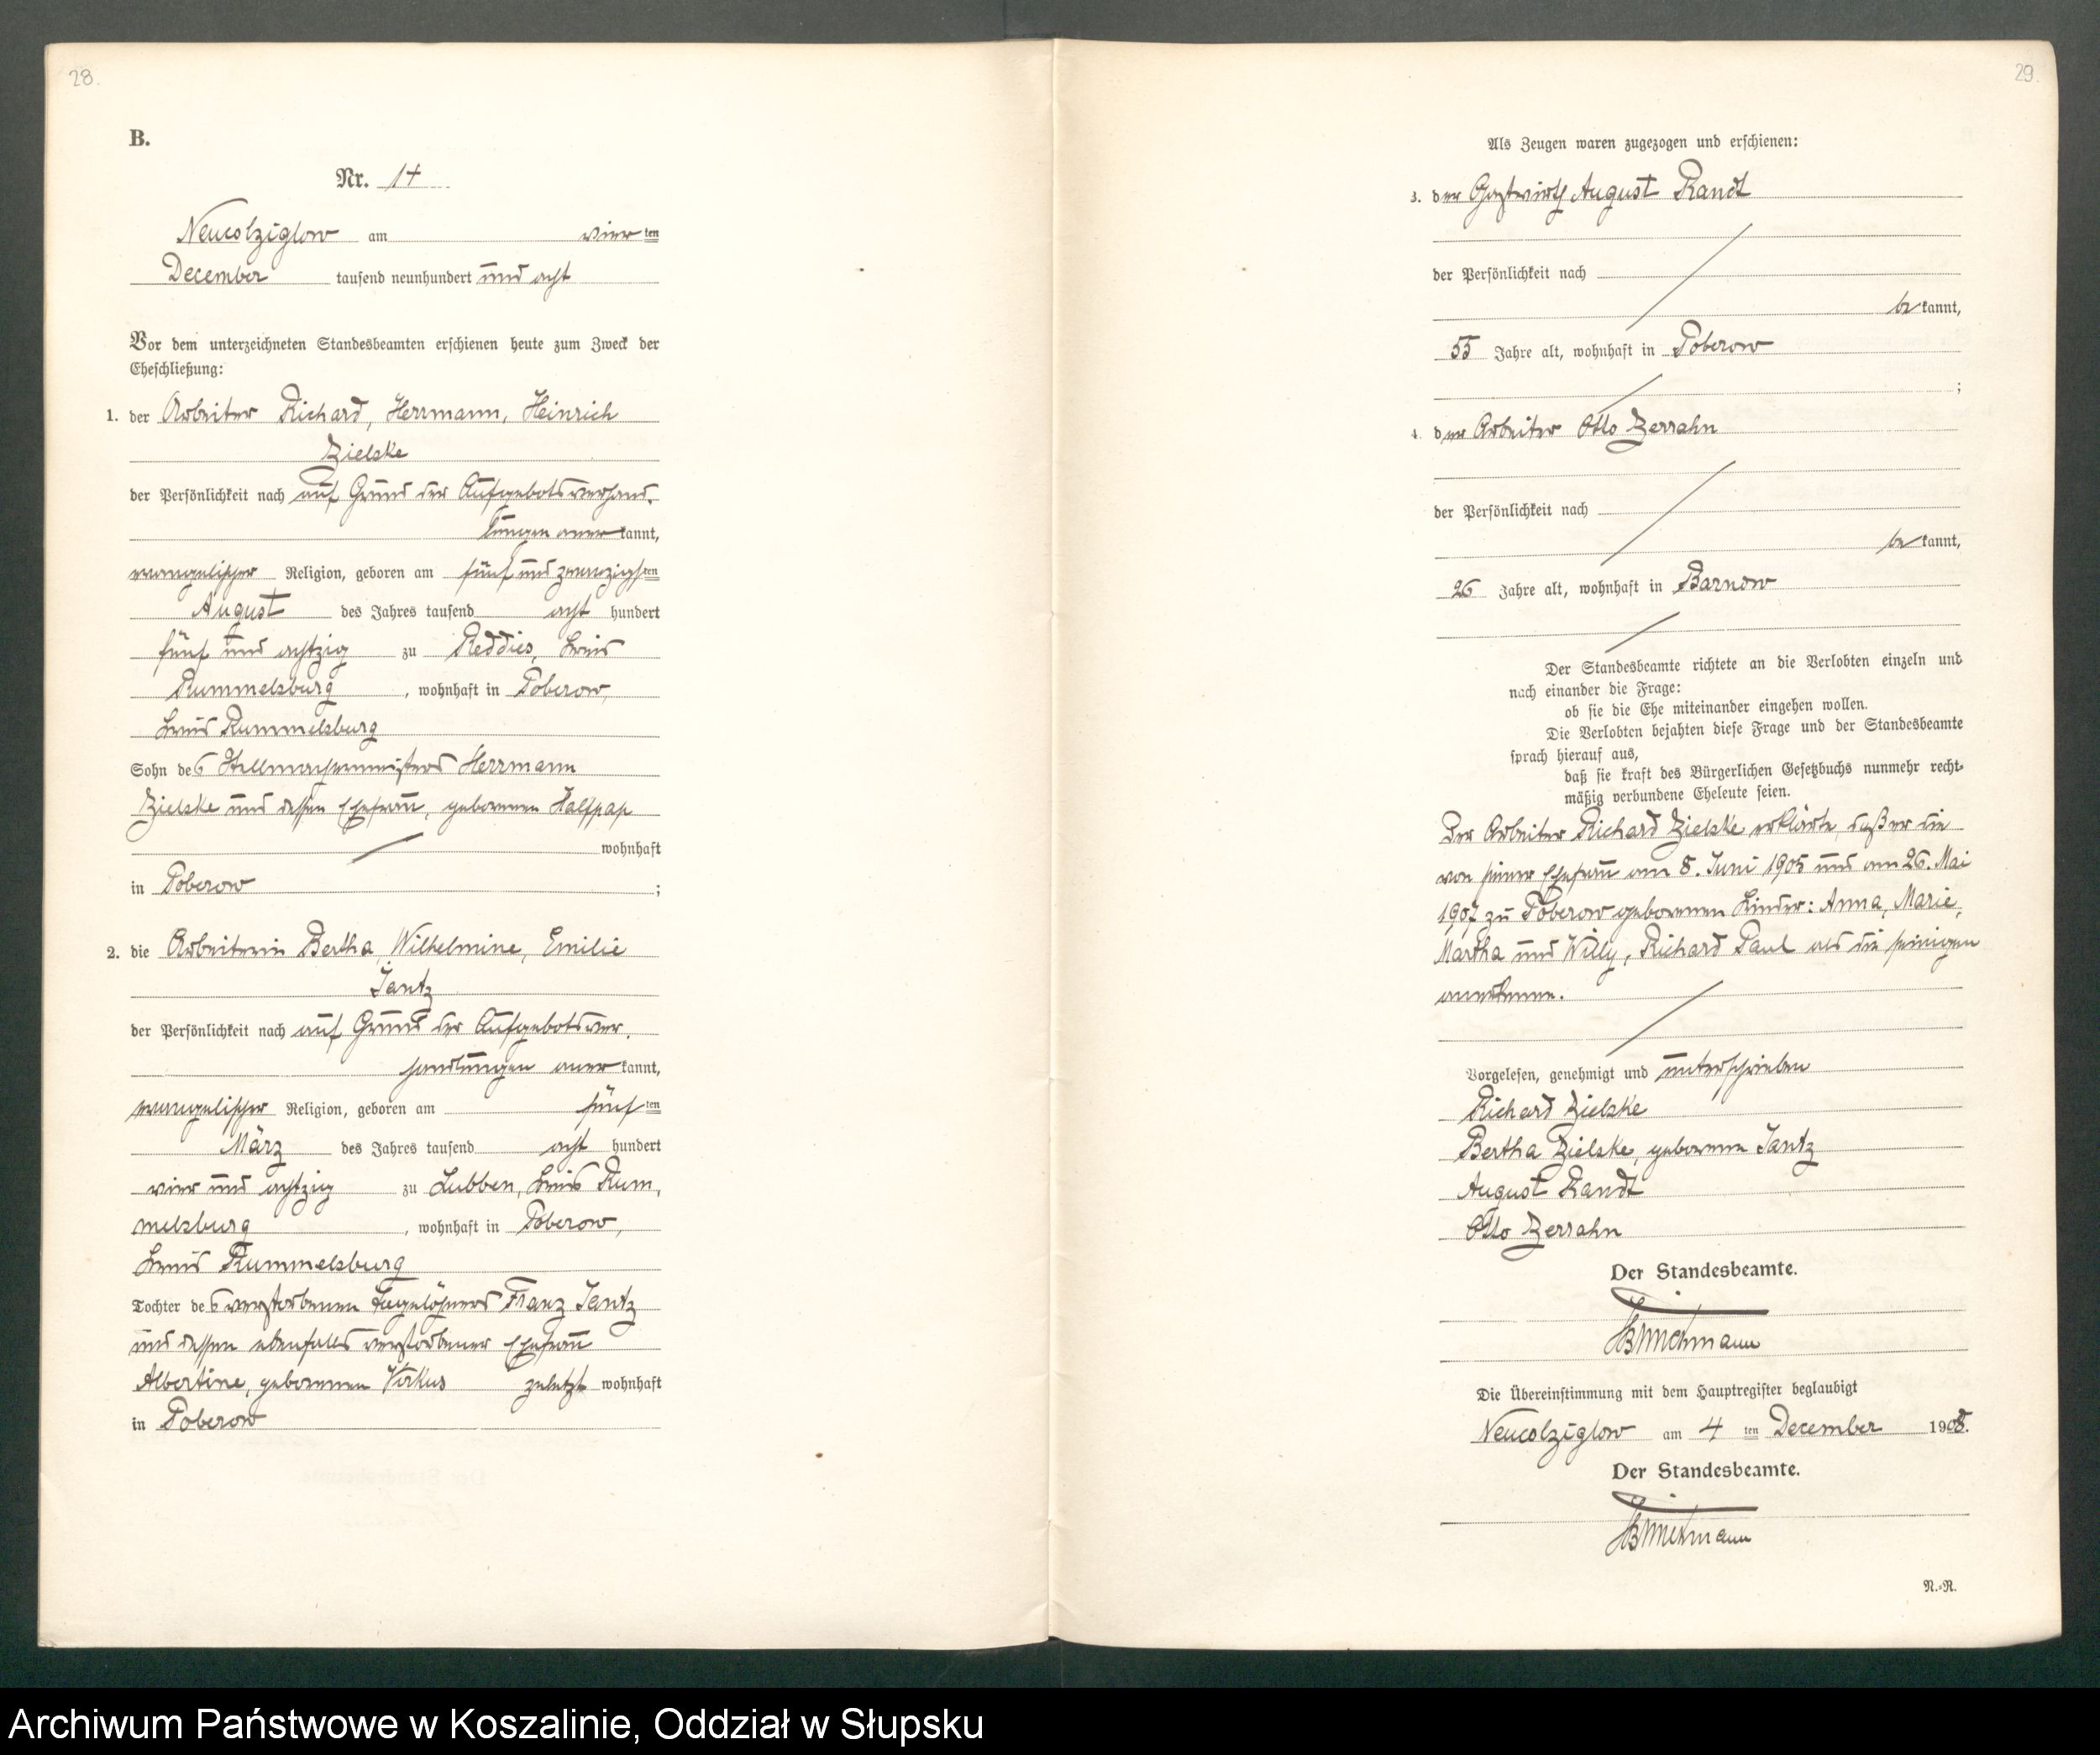 28.
B.
Nr. 14
Neucolziglow am vierten
December tausend neunhundert und acht
Vor dem unterzeichneten Standesbeamten erschienen heute zum Zweck der
Eheschließung:
1. der Arbeiter Richard, Herrmann, Heinrich
Zielske
der Persönlichkeit nach auf Grund der Aufgebotsverhand-
lungen anerkannt,
evangelischer Religion, geboren am fünf und zwanzigsten
August des Jahres tausend acht hundert
fünf und achtzig zu Reddies, Kreis
Rummelsburg, wohnhaft in Poberow,
Kreis Rummelsburg
Sohn des Stellmachermeisters Herrmann
Zielske und dessen Ehefrau, geborenen Halfpap
wohnhaft
in Poberow;
2. die Arbeiterin Bertha, Wilhelmine, Emilie
Jantz
der Persönlichkeit nach auf Grund der Aufgebotsver-
handlungen anerkannt,
evangelischer Religion, geboren am fünften
März des Jahres tausend acht hundert
vier und achtzig zu Lubben, Kreis Rum-
melsburg, wohnhaft in Poberow,
Kreis Rummelsburg
Tochter des verstorbenen Tagelöhners Franz Jantz
und dessen ebenfalls verstorbener Ehefrau
Albertine, geborenen Virkus zuletzt wohnhaft
in Poberow
29.
Als Zeugen waren zugezogen und erschienen:
3. der Gastwirth August Randt
der Persönlichkeit nach
bekannt,
55 Jahre alt, wohnhaft in Poberow
;
4. der Arbeiter Otto Zerrahn
der Persönlichkeit nach
bekannt,
26 Jahre alt, wohnhaft in Barnow
Der Standesbeamte richtete an die Verlobten einzeln und
nach einander die Frage:
ob sie die Ehe miteinander eingehen wollen.
Die Verlobten bejahten diese Frage und der Standesbeamte
sprach hierauf aus,
daß sie kraft des Bürgerlichen Gesetzbuchs nunmehr recht-
mäßig verbundene Eheleute seien.
Der Arbeiter Richard Zielske erklärte, daß er die
von seiner Ehefrau am 8. Juni 1905 und am 26. Mai
1907 zu Poberow geborenen Kinder: Anna, Marie,
Martha und Willy, Richard Paul als die seinigen
anerkenne.
Vorgelesen, genehmigt und unterschrieben
Richard Zielske
Bertha Zielske, geborene Jantz
August Randt
Otto Zerrahn
Der Standesbeamte.
Die Übereinstimmung mit dem Hauptregister beglaubigt
Neucolziglow am 4 ten December 1908.
Der Standesbeamte.
N.-N.
Archiwum Państwowe w Koszalinie, Oddział w Słupsku